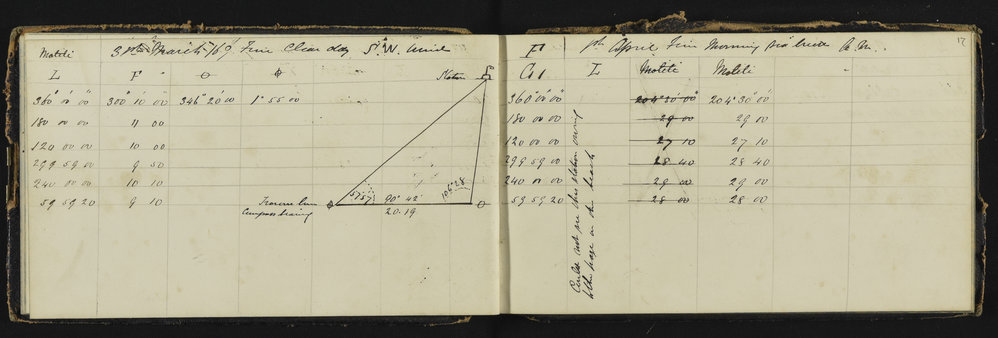 Motiti 31st March /69 Fine Clear day S.W. wind
L F
360° 00 00 300° 10 00 346° 20 00 1° 55 00
180 00 00 11 00
120 00 00 10 00
299 59 00 9 50
240 00 00 10 10
59 59 20 9 10
Station
57 57
90° 42
106° 28
Traverse line
Compass bearing
20.19
O
17
F 1st April Fine Morning sea breeze P.M.
L Motiti Motiti
360° 00 00 204° 30 00 204° 30 00
180 00 00 29 00 29 00
120 00 00 27 10 27 10
299 59 00 28 40 28 40
240 00 00 29 00 29 00
59 59 20 28 00 28 00
Could not see this station owing
to the haze on the beach